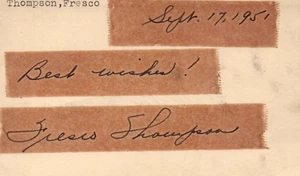 Thompson,Fresco
Sept. 17, 1951
Best wishes!
Fresco Thompson